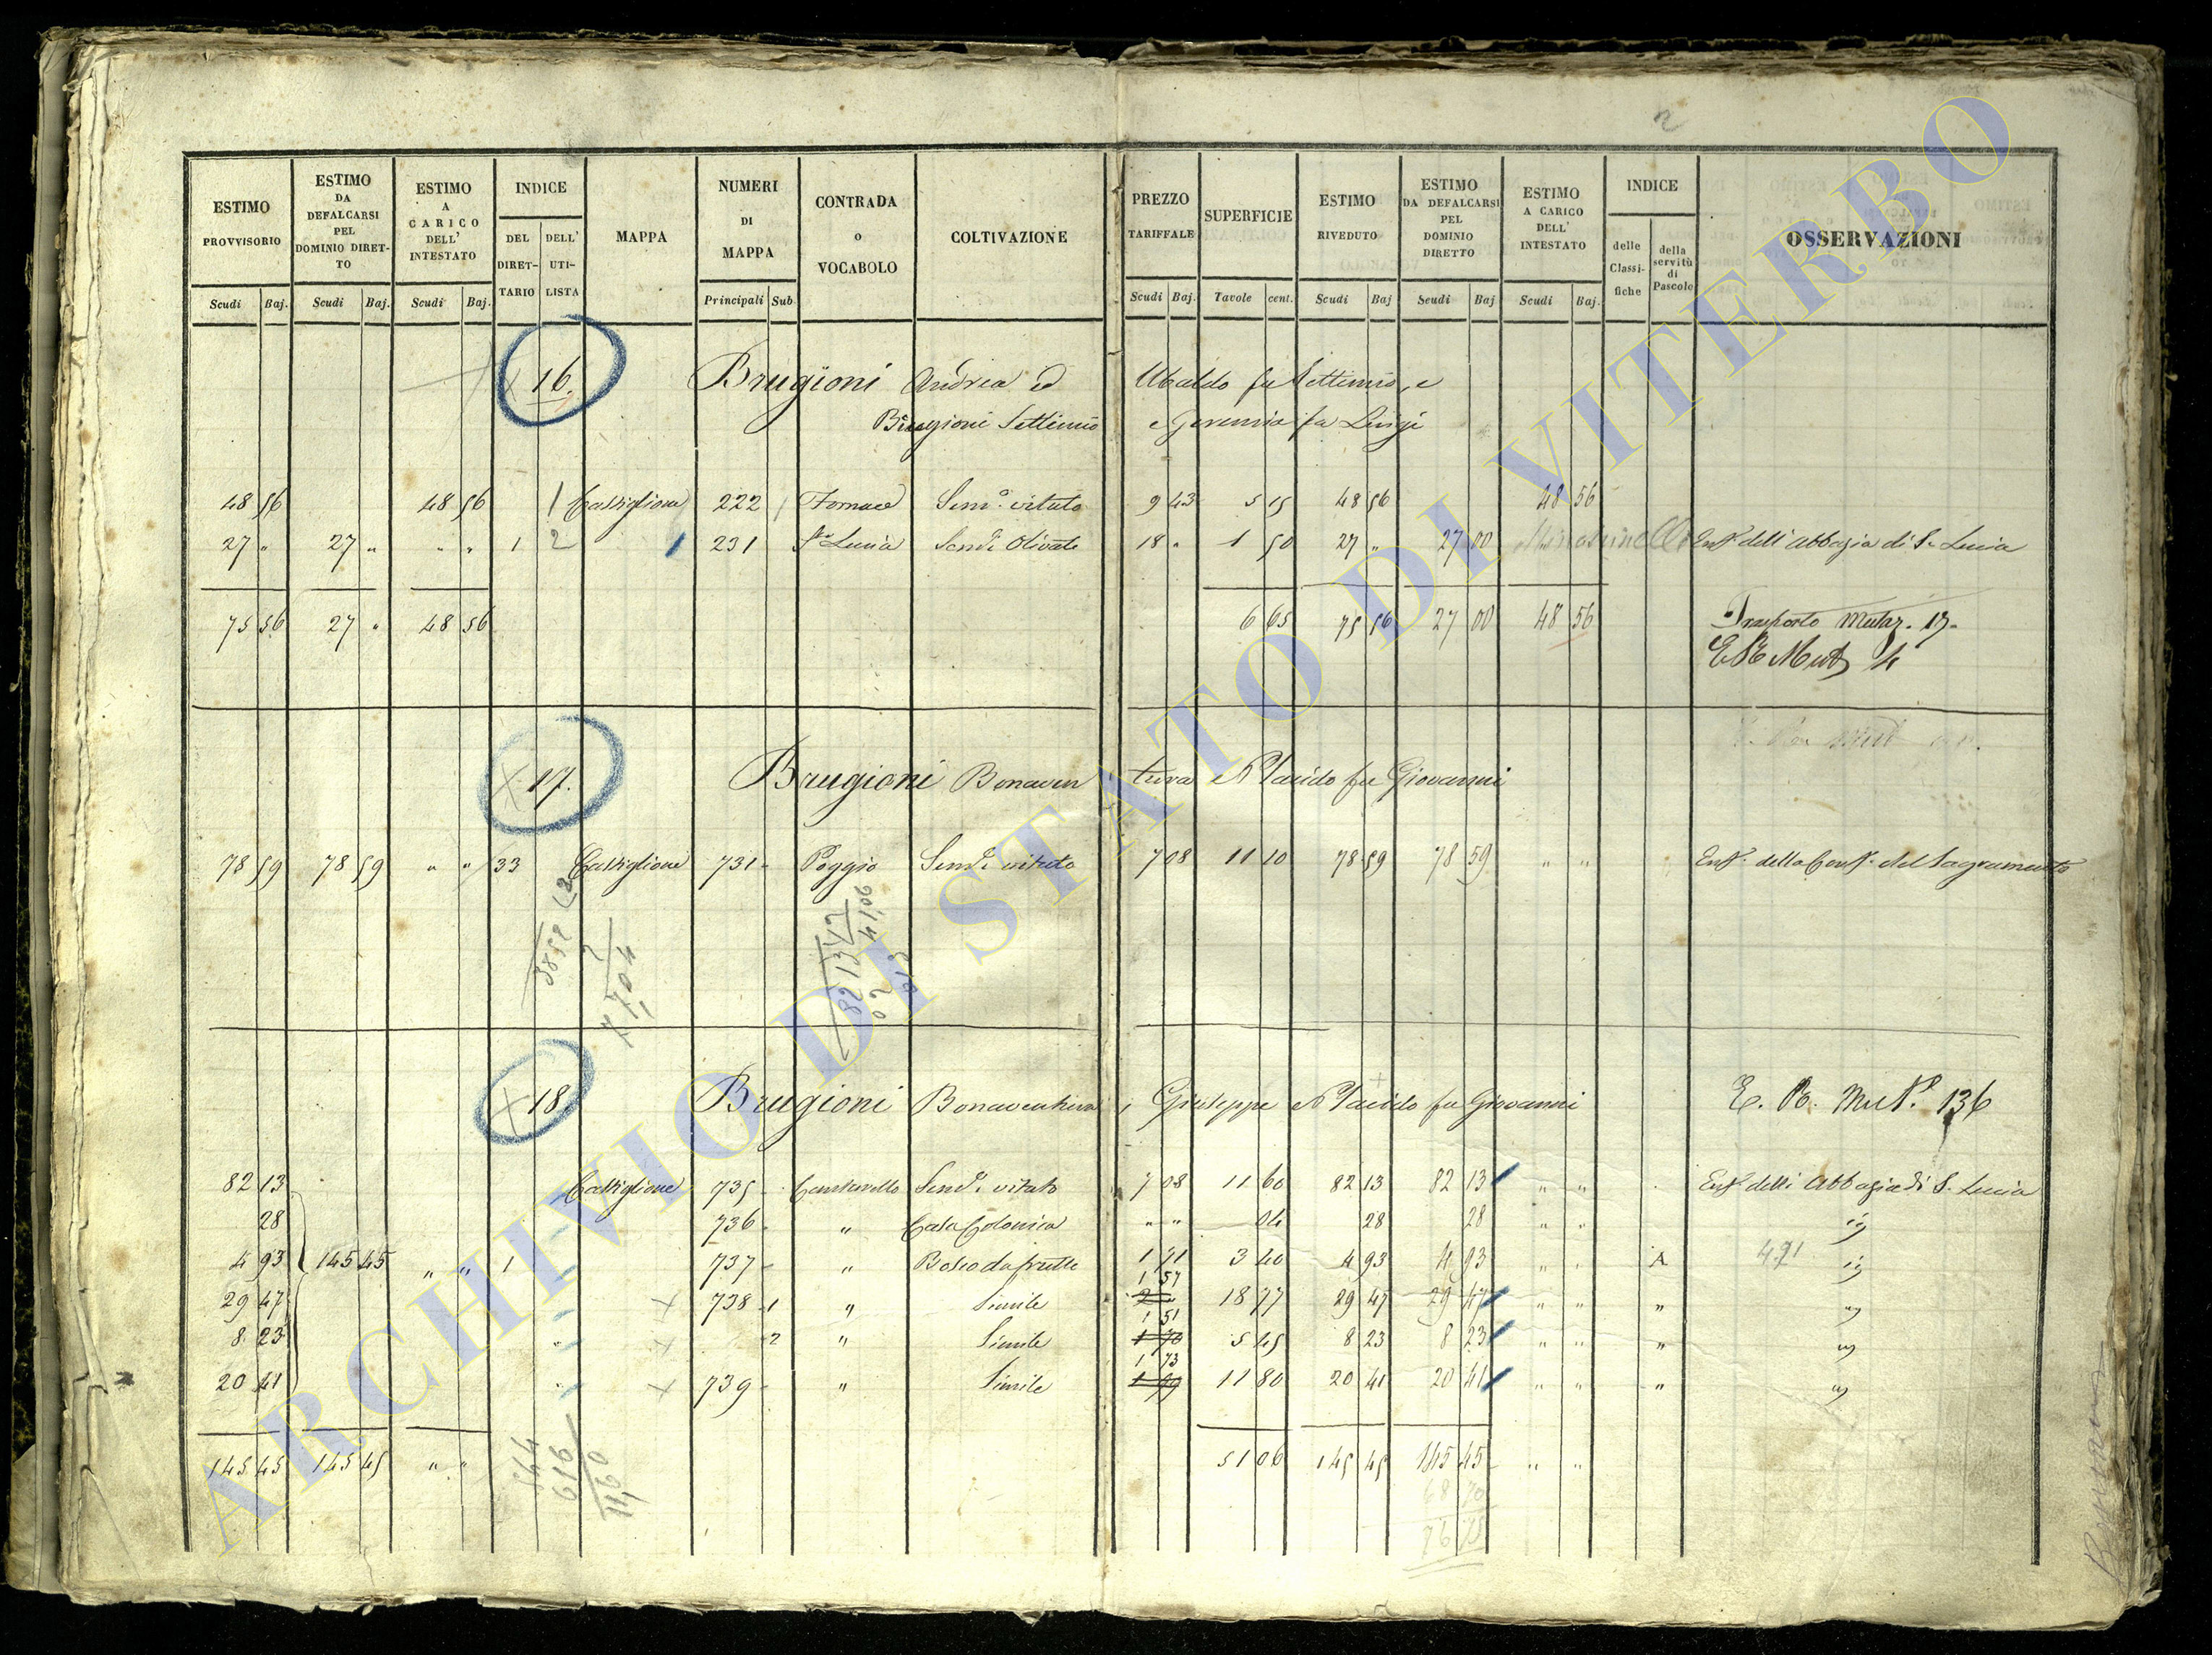 2
ESTIMO PROVVISORIO
ESTIMO DA DEFALCARSI PEL DOMINIO DIRET-TO
ESTIMO A CARICO DELL' INTESTATO
INDICE
DEL DIRET-TARIO
DELL' UTI-LISTA
MAPPA
NUMERI DI MAPPA
CONTRADA o VOCABOLO
COLTIVAZIONE
PREZZO TARIFFALE
SUPERFICIE
ESTIMO RIVEDUTO
ESTIMO DA DEFALCARSI PEL DOMINIO DIRETTO
ESTIMO A CARICO DELL' INTESTATO
INDICE
delle Classi-fiche
della servitù di Pascolo
OSSERVAZIONI
Scudi Baj. Scudi Baj. Scudi Baj. Principali Sub. Scudi Baj. Tavole cent. Scudi Baj Scudi Baj Scudi Baj.
16. Brugioni Andrea ed Ubaldo fu Settimio, e
Brugioni Settimio e Geremia fu Luigi
48 56 48 56 1 Castiglione 222 Fornace Sem.o vitato 9 43 5 15 48 56 48 56
27 " 27 " " " 1 2 1 231 S.ta Lucia Sem.o Olivato 18 " 1 50 27 " 27 00 " Enf.a dell'Abbazia di S. Lucia
75 56 27 " 48 56 6 65 75 56 27 00 48 56 Trasporto Mutaz. 17.
17. Brugioni Bonaventura e Placido fu Giovanni
78 59 78 59 " " 33 Castiglione 731 Poggio Sem.o vitato 7 08 11 10 78 59 78 59 " " Enf.a della Conf.a del Sagramento
3852
2
77,04
82 13
41,06
02
013
18 Brugioni Bonaventura, Giuseppe e Placido fu Giovanni E. R. Mut. 136
82 13 Castiglione 735 Sem.o vitato 7 08 11 60 82 13 82 13 " " Enf.a dell'Abbazia di S. Lucia
28 736 " Casa Colonica " " 04 28 28 " "
4 93 145 45 " " 1 737 " Bosco da frutto 3 40 4 93 4 93 " A 491
29 47 738 1 " Simile 1 57 18 77 29 47 29 47 " " "
8 23 2 " Simile 1 51 5 45 8 23 8 23 " " "
20 41 739 " Simile 1 73 11 80 20 41 20 41 " " "
145 45 145 45 " " 51 06 145 45 145 45 " "
544
616
11,60
68 70
76 75
ARCHIVIO DI STATO DI VITERBO